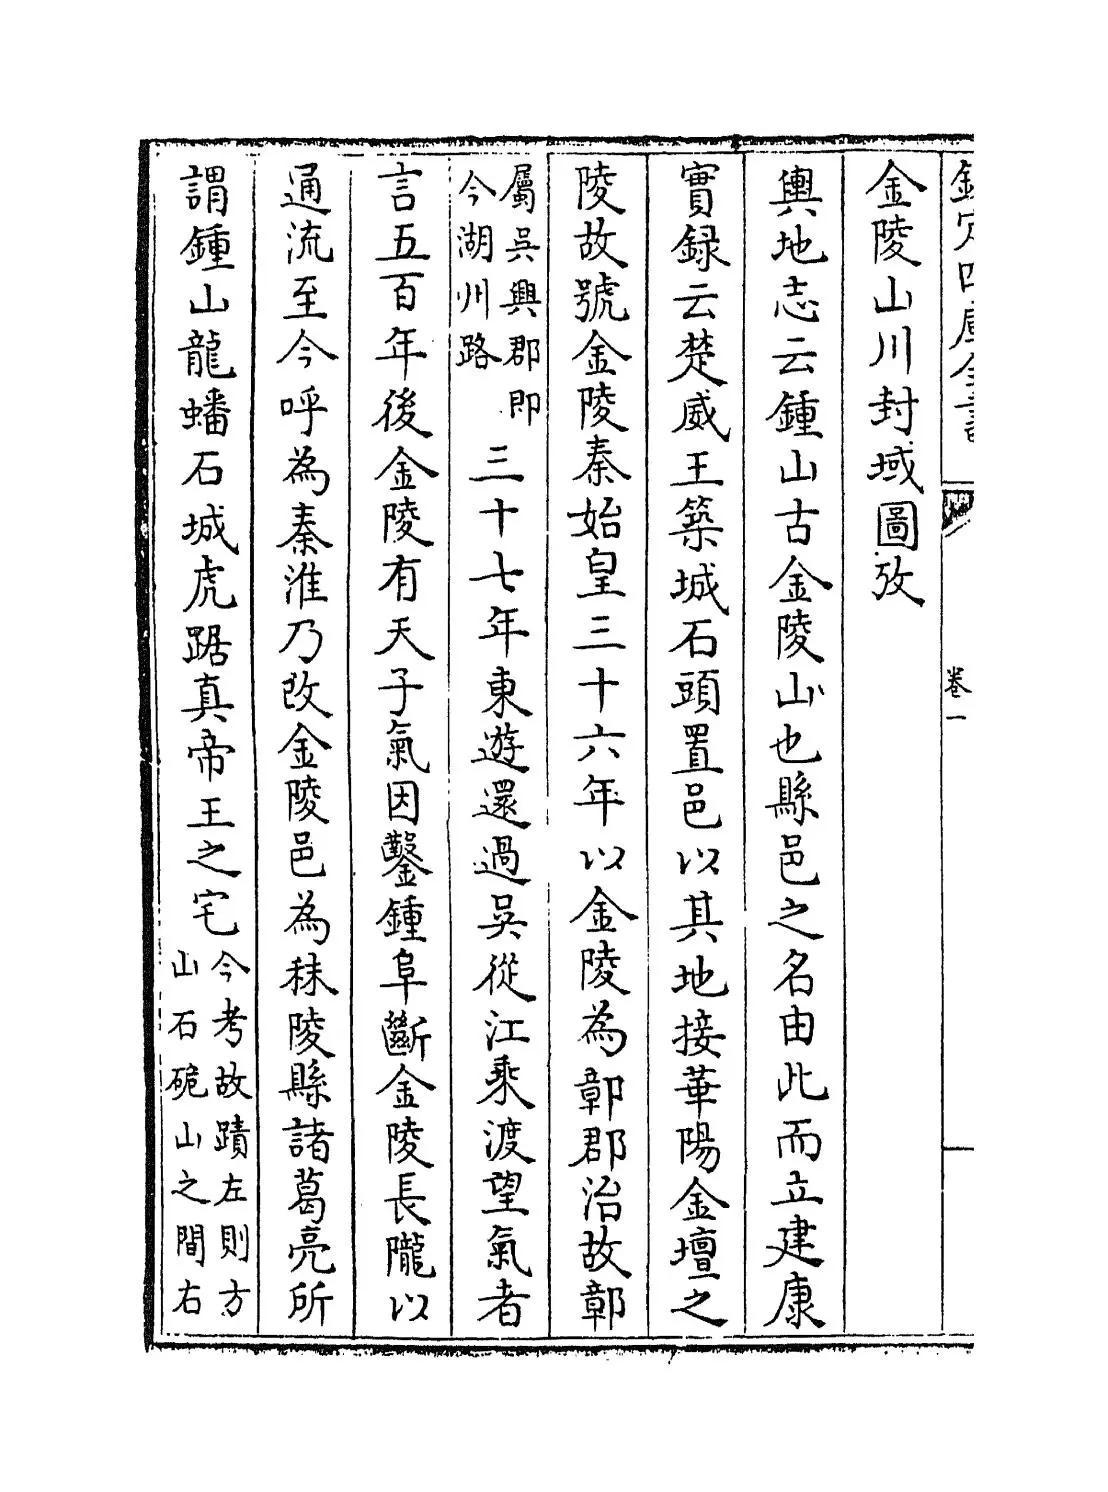 欽定四庫全書
卷一
金陵山川封域圖攷
輿地志云鍾山古金陵山也縣邑之名由此而立建康
實録云楚威王築城石頭置邑以其地接華陽金壇之
陵故號金陵秦始皇三十六年以金陵為鄣郡治故鄣
屬吳興郡即
今湖州路
三十七年東遊還過吳從江乘渡望氣者
言五百年後金陵有天子氣因鑿鍾阜斷金陵長隴以
通流至今呼為秦淮乃改金陵邑為秣陵縣諸葛亮所
謂鍾山龍蟠石城虎踞真帝王之宅
今考故蹟左則方
山石硊山之間右